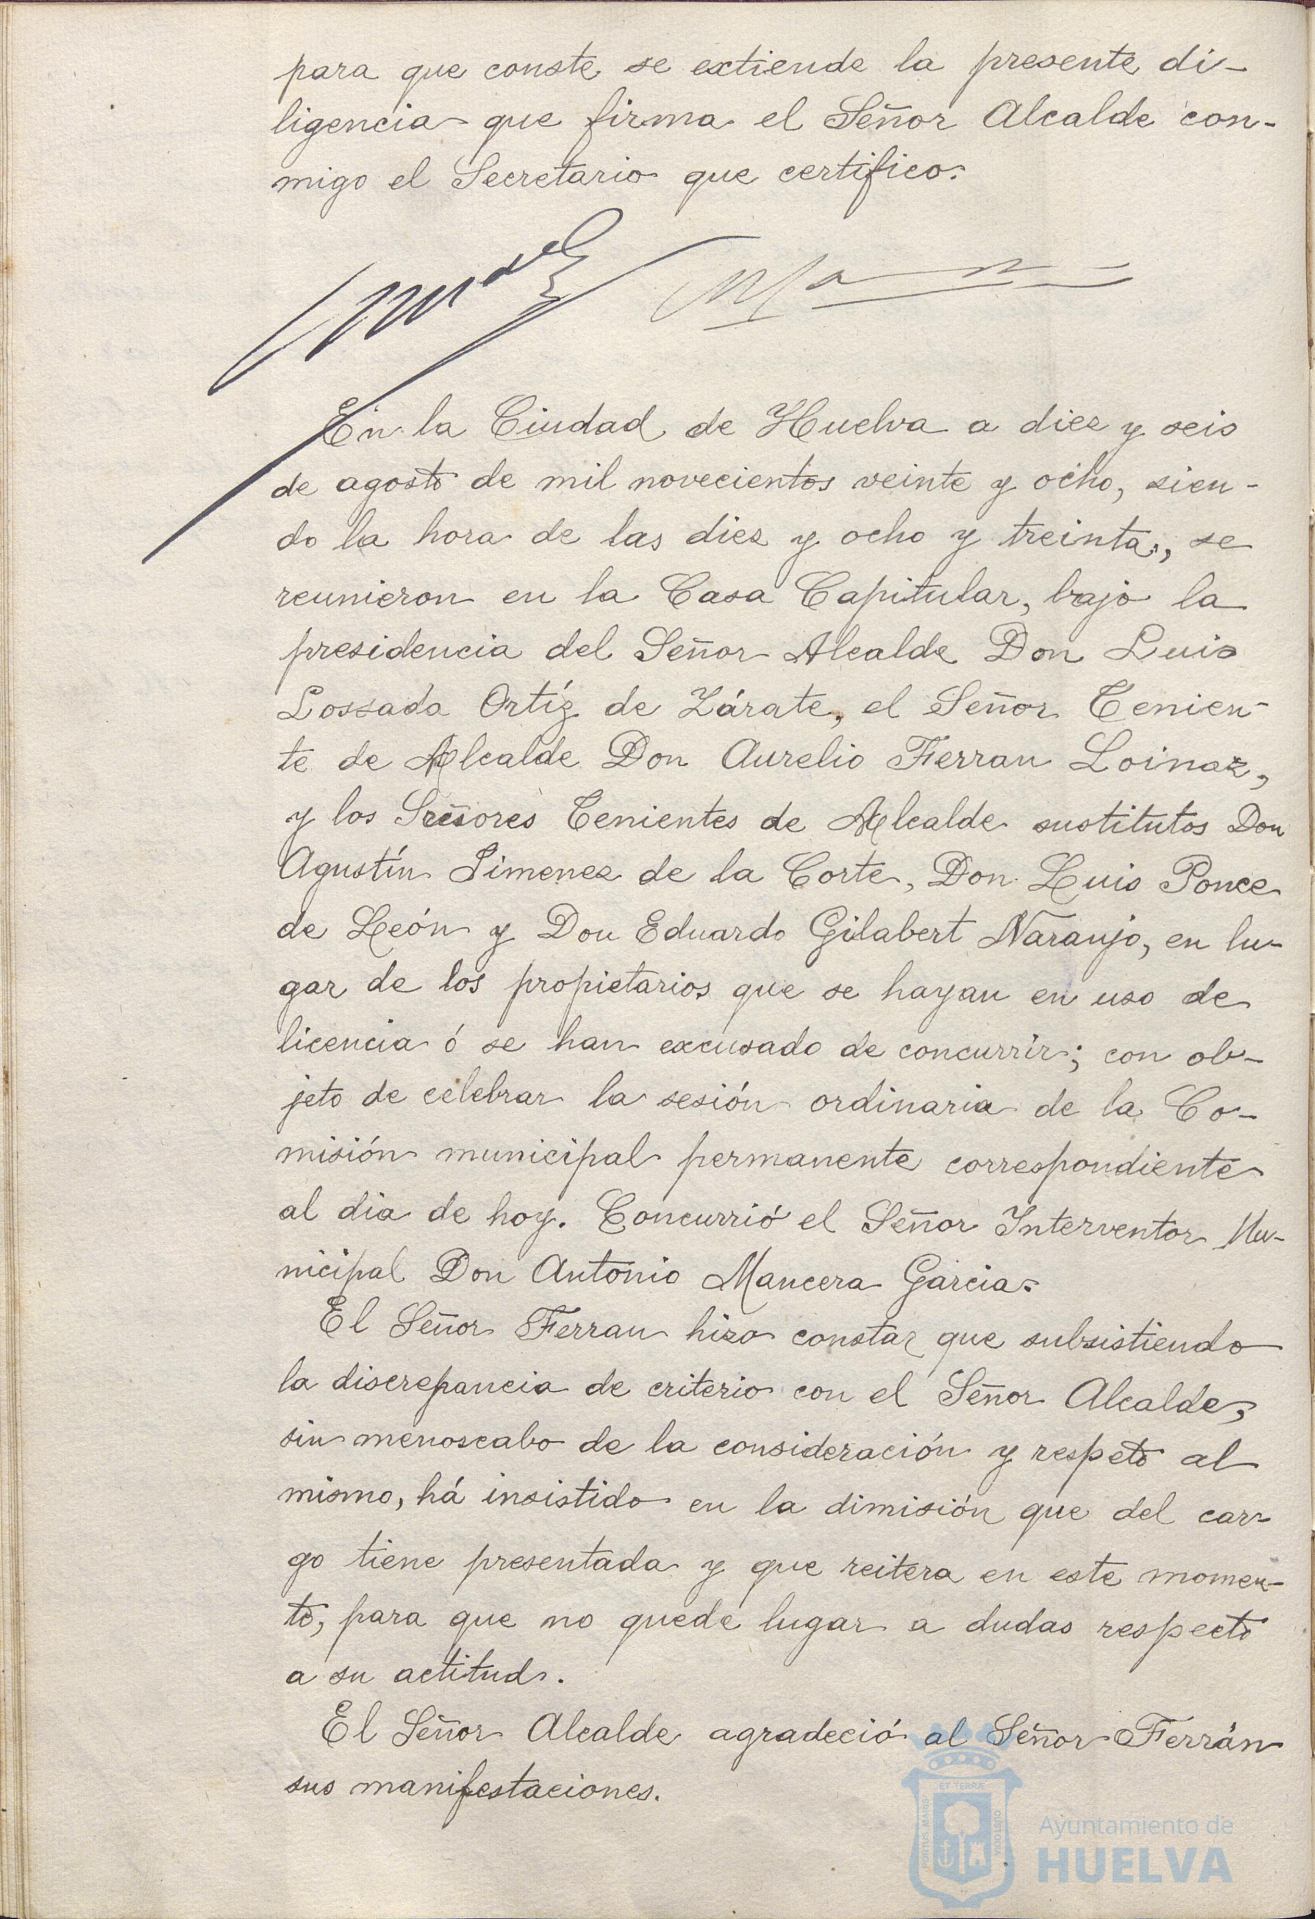 para que conste se extiende la presente di-
ligencia que firma el Señor Alcalde con-
migo el Secretario que certifico.
En la Ciudad de Huelva a diez y seis
de agosto de mil novecientos veinte y ocho, sien-
do la hora de las diez y ocho y treinta, se
reunieron en la Casa Capitular, bajo la
presidencia del Señor Alcalde Don Luis
Lossada Ortíz de Zárate, el Señor Tenien-
te de Alcalde Don Aurelio Ferran Loinaz,
y los Señores Tenientes de Alcalde sustitutos Don
Agustín Jimenez de la Corte, Don Luis Ponce
de León y Don Eduardo Gilabert Naranjo, en lu-
gar de los propietarios que se hayan en uso de
licencia ó se han excusado de concurrir; con ob-
jeto de celebrar la sesión ordinaria de la Co-
misión municipal permanente correspondiente
al dia de hoy. Concurrió el Señor Interventor Mu-
nicipal Don Antonio Mancera Garcia.
El Señor Ferran hizo constar que subsistiendo
la discrepancia de criterio con el Señor Alcalde,
sin menoscabo de la consideración y respeto al
mismo, há insistido en la dimisión que del car-
go tiene presentada y que reitera en este momen-
to, para que no quede lugar a dudas respecto
a su actitud.
El Señor Alcalde agradeció al Señor Ferrán
sus manifestaciones.
PORTUS MARIS ET TERRÆ CUSTODIA
Ayuntamiento de
HUELVA